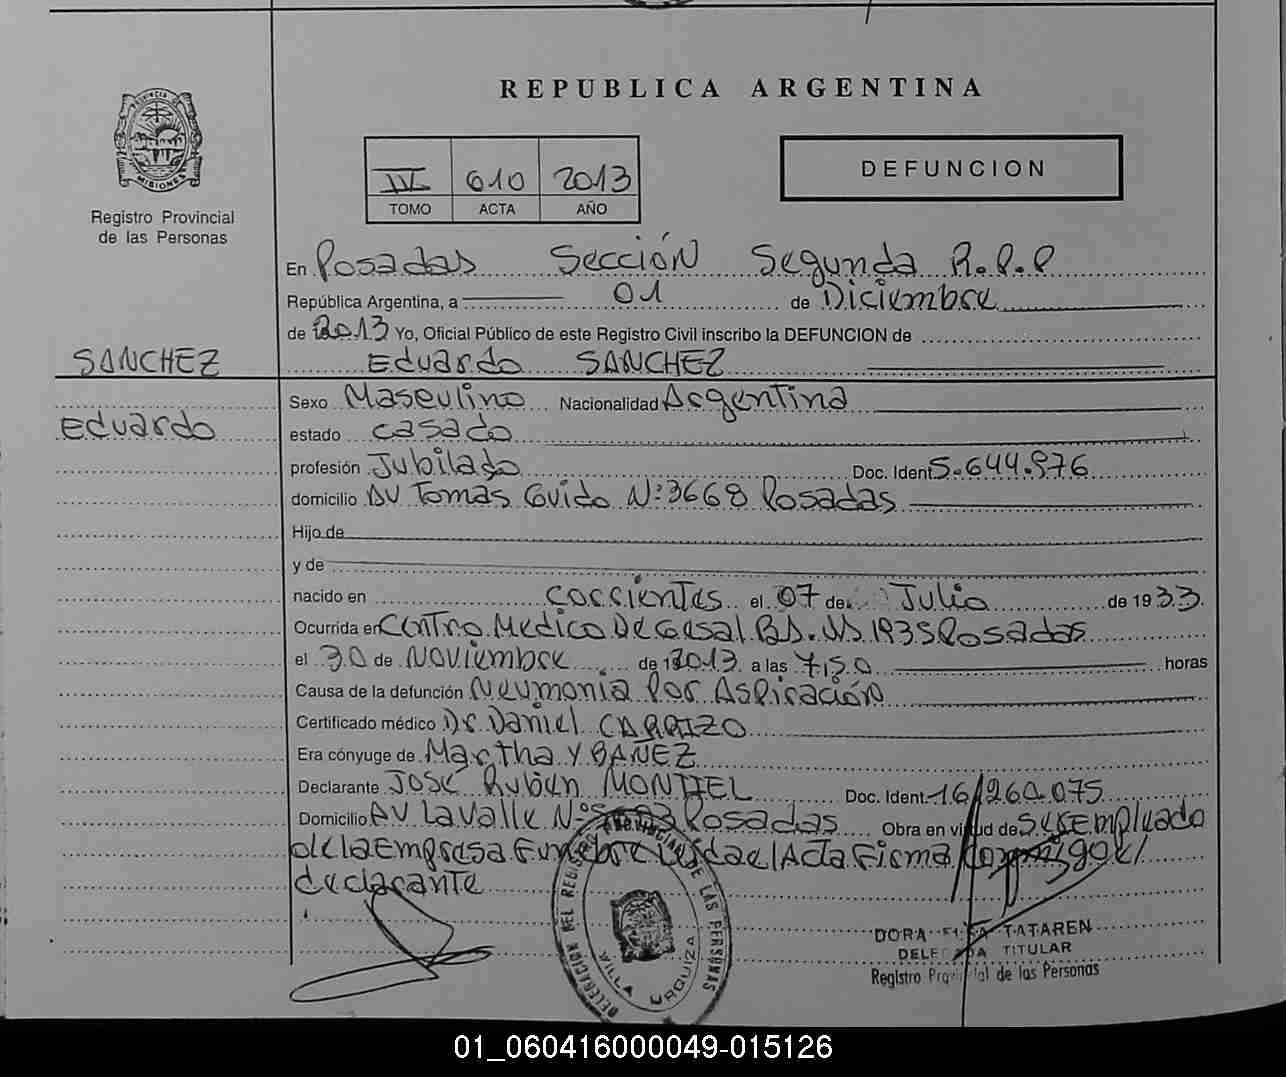 REPUBLICA ARGENTINA
PROVINCIA DE MISIONES
Registro Provincial
de las Personas
IV 610 2013
TOMO ACTA AÑO
DEFUNCION
En Posadas Sección Segunda R.P.P
República Argentina, a 01 de Diciembre
de 2013 Yo, Oficial Público de este Registro Civil inscribo la DEFUNCION de
SANCHEZ
Eduardo SANCHEZ
Sexo Masculino Nacionalidad Argentina
Eduardo
estado casado
profesión Jubilado Doc. Ident 5.644.976
domicilio AV Tomás Guido Nº 3668 Posadas
Hijo de
y de
nacido en Corrientes el 07 de Julio de 1933
Ocurrida en Centro Medico 1935 Posadas
el 30 de Noviembre de 2013 a las 7:50 horas
Causa de la defunción Neumonia Por Aspiración
Certificado médico Dr. Daniel CARRIZO
Era cónyuge de Martha YBAÑEZ
Declarante José Rubén MONTIEL Doc. Ident 16.260.075
Domicilio AV Lavalle Nº Posadas Obra en virtud de ser Empleado
de la Empresa Funebre Leida el Acta Firma conmigo el
declarante
DELEGACION DEL REGISTRO PROVINCIAL DE LAS PERSONAS
VILLA URQUIZA
DORA TATAREN
DELEGADA TITULAR
Registro Provincial de las Personas
01_060416000049-015126